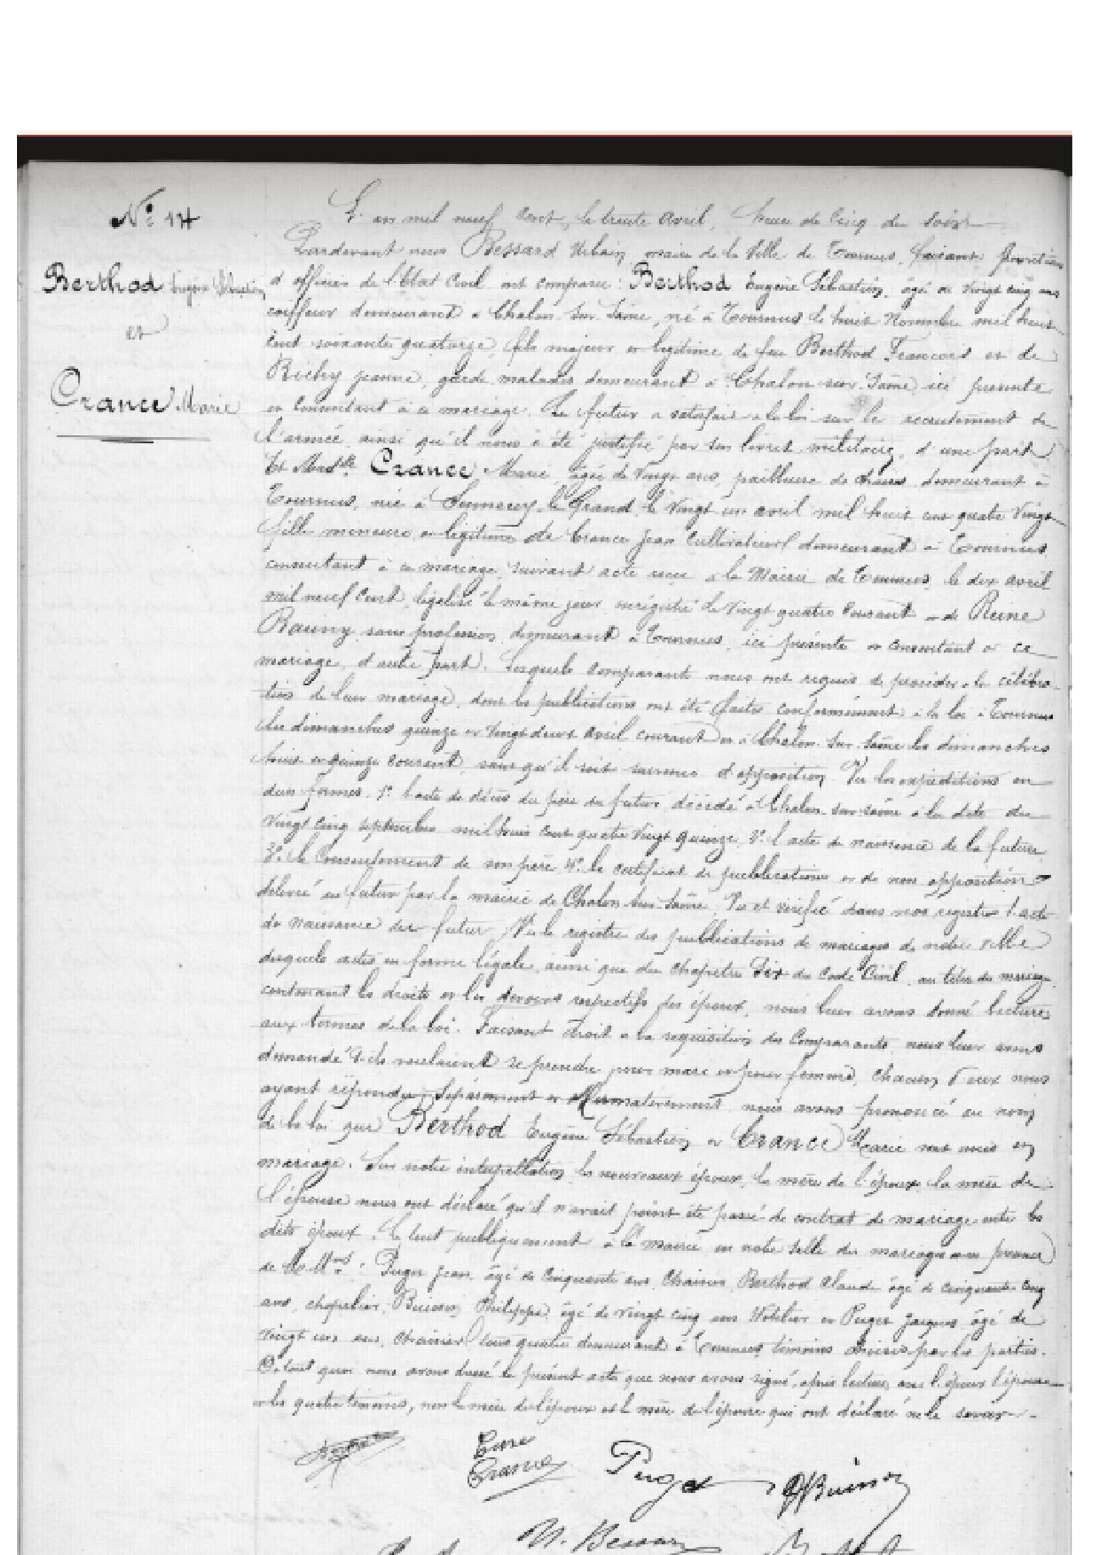 N° 14
Berthod Eugène Sébastien
et
Crance Marie
L'an mil neuf cent, le trente avril, heure de cinq du soir
Pardevant nous Bessard Urbain maire de la Ville de Tournus, faisant fonctions
d'officier de l'Etat Civil ont comparu : Berthod Eugène Sébastien, âgé de vingt cinq ans
coiffeur demeurant à Chalon sur Saône, né à Tournus le huit Novembre mil huit
cent soixante quatorze, fils majeur et légitime de feu Berthod François et de
Richy Jeanne, garde malades demeurant à Chalon sur Saône ici présente
et consentant à ce mariage. Le futur a satisfait à la loi sur le recrutement de
l'armée ainsi qu'il nous a été justifié par son livret militaire, d'une part
Et Mad.lle Crance Marie, âgée de vingt ans, pailleuse de chaises demeurant à
Tournus, née à Sennecey le Grand, le vingt un avril mil huit cent quatre vingt
fille mineure et légitime de Crance Jean Cultivateur demeurant à Tournus
consentant à ce mariage suivant acte reçu à la Mairie de Tournus, le dix avril
mil neuf cent, légalisé le même jour enregistré le vingt quatre courant et de Reine
Rauny sans profession, demeurant à Tournus, ici présente et consentant à ce
mariage, d'autre part. Lesquels comparant nous ont requis de procéder à la célébra-
tion de leur mariage, dont les publications ont été faites conformément à la loi à Tournus
les dimanches quinze et vingt deux avril courant et à Chalon-sur-Saône les dimanches
huit et quinze courant, sans qu'il soit survenu d'opposition. Vu les expéditions en
dues formes. 1° l'acte de décès du père du futur, décédé à Chalon-sur-Saône à la date du
vingt cinq septembre mil huit cent quatre vingt quinze. 2° l'acte de naissance de la future
3° le Consentement de son père 4° le certificat de publications et de non opposition
délivré au futur par la mairie de Chalon sur Saône. Vu et vérifié dans nos registres l'acte
de naissance du futur. Vu le registre des publications de mariages de notre ville
desquels actes en forme légale, ainsi que du chapitre Six du Code Civil, au titre du mariage,
contenant les droits et les devoirs respectifs des époux, nous leur avons donné lecture,
aux termes de la loi. Faisant droit à la réquisition des Comparants nous leur avons
demandé s'ils voulaient se prendre pour mari et pour femme, chacun d'eux nous
ayant répondu séparément et affirmativement nous avons prononcé au nom
de la loi que Berthod Eugène Sébastien et Crance Marie sont unis en
mariage. Sur notre interpellation, les nouveaux époux, la mère de l'époux, la mère de
l'épouse nous ont déclaré qu'il n'avait point été passé de contrat de mariage entre les
dits époux. Le tout publiquement à la mairie en notre salle des mariages en présence
de M.M.rs : Puget Jean âgé de cinquante ans, Chaisier, Berthod Claude âgé de cinquante cinq
ans, chapelier, Buisson Philippe âgé de vingt cinq ans Hôtelier et Puget Jacques âgé de
vingt un ans, chaisier tous quatre demeurant à Tournus témoins choisis par les parties.
De tout quoi nous avons dressé le présent acte que nous avons signé, après lecture, avec l'époux l'épouse
et les quatre témoins, non la mère de l'époux et la mère de l'épouse qui ont déclaré ne le savoir
Crance
Puget
Buisson
U. Bessard